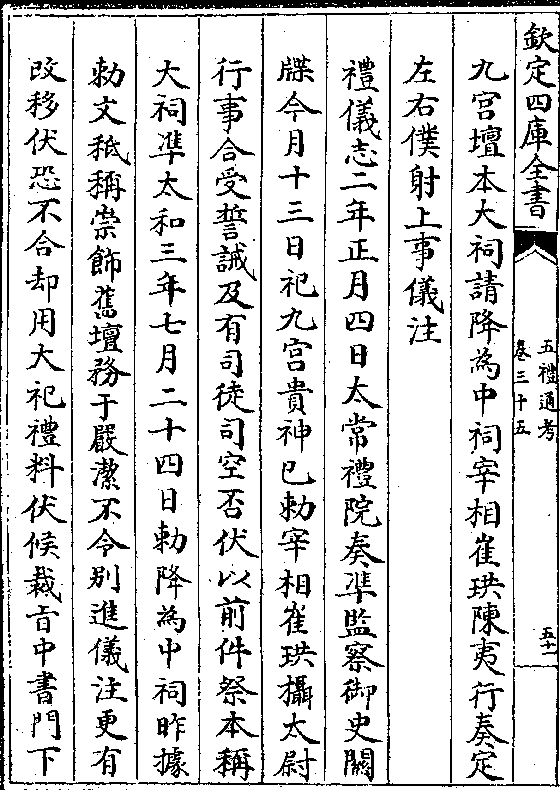 欽定四庫全書
五禮通考
卷三十五
五十一
九宫壇本大祠請降為中祠宰相崔珙陳夷行奏定
左右僕射上事儀注
禮儀志二年正月四日太常禮院奏準監察御史關
牒今月十三日祀九宫貴神已勅宰相崔珙攝太尉
行事合受誓誡及有司徒司空否伏以前件祭本稱
大祠準太和三年七月二十四日勅降為中祠昨據
勅文秪稱崇飾舊壇務于嚴潔不令别進儀注更有
改移伏恐不合却用大祀禮料伏候裁旨中書門下